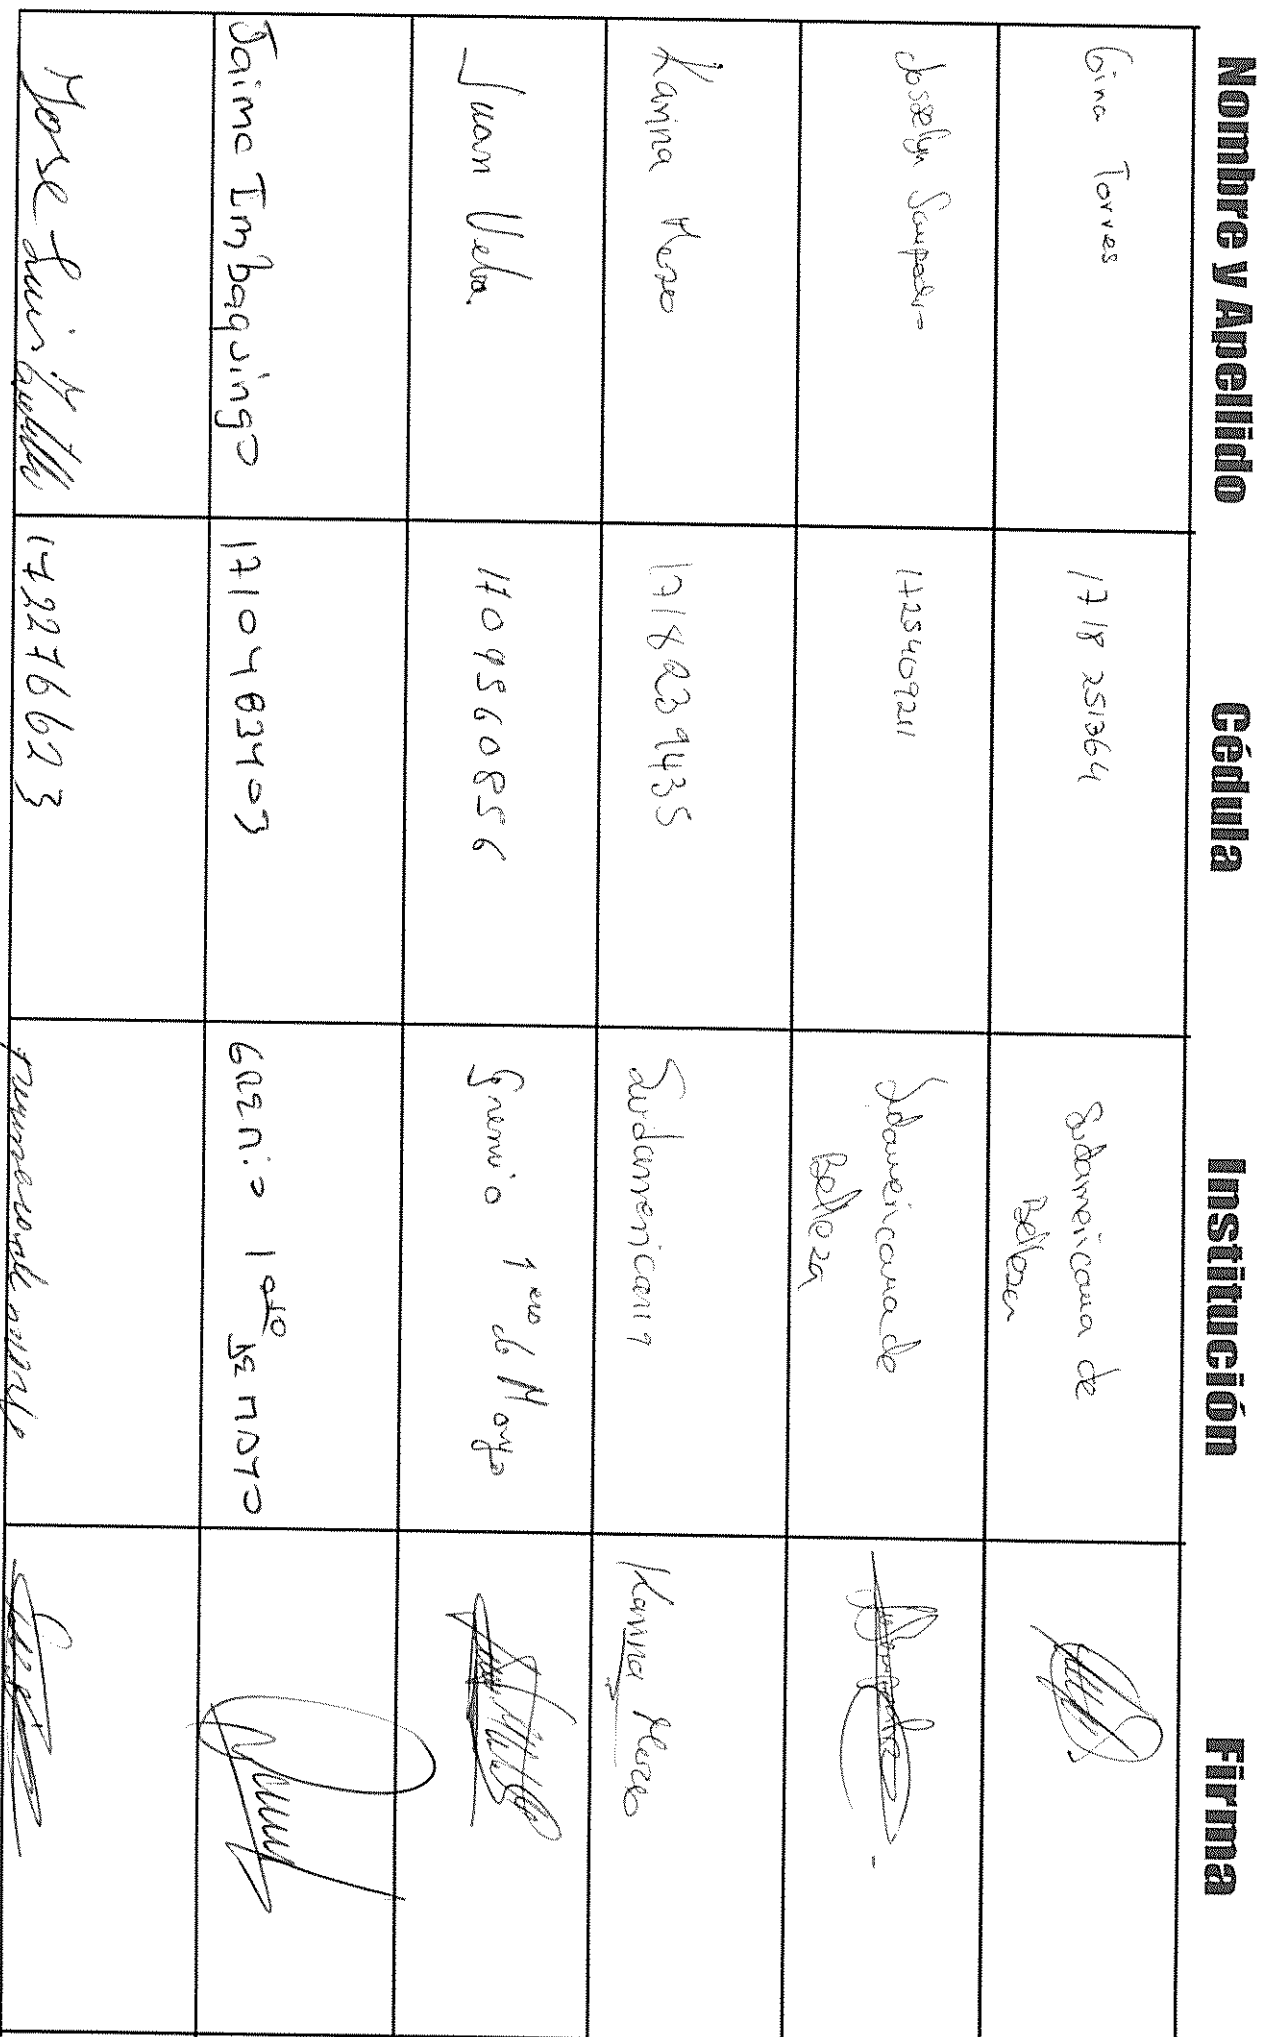 Nombre y Apellido Cédula Institución Firma
Gina Torres 1718251364 Sudamericana de
Belleza
Josselyn Sampedro 1725409211 Sudamericana de
Belleza
Karina Merzo 1718239435 Sudamericana Karina
Juan Ulcba 1709560856 Gremio 1ero de Mayo
Jaime Imbaquingo 1710483403 GREMIO 1ero DE MAYO
Jose Luis 172276623